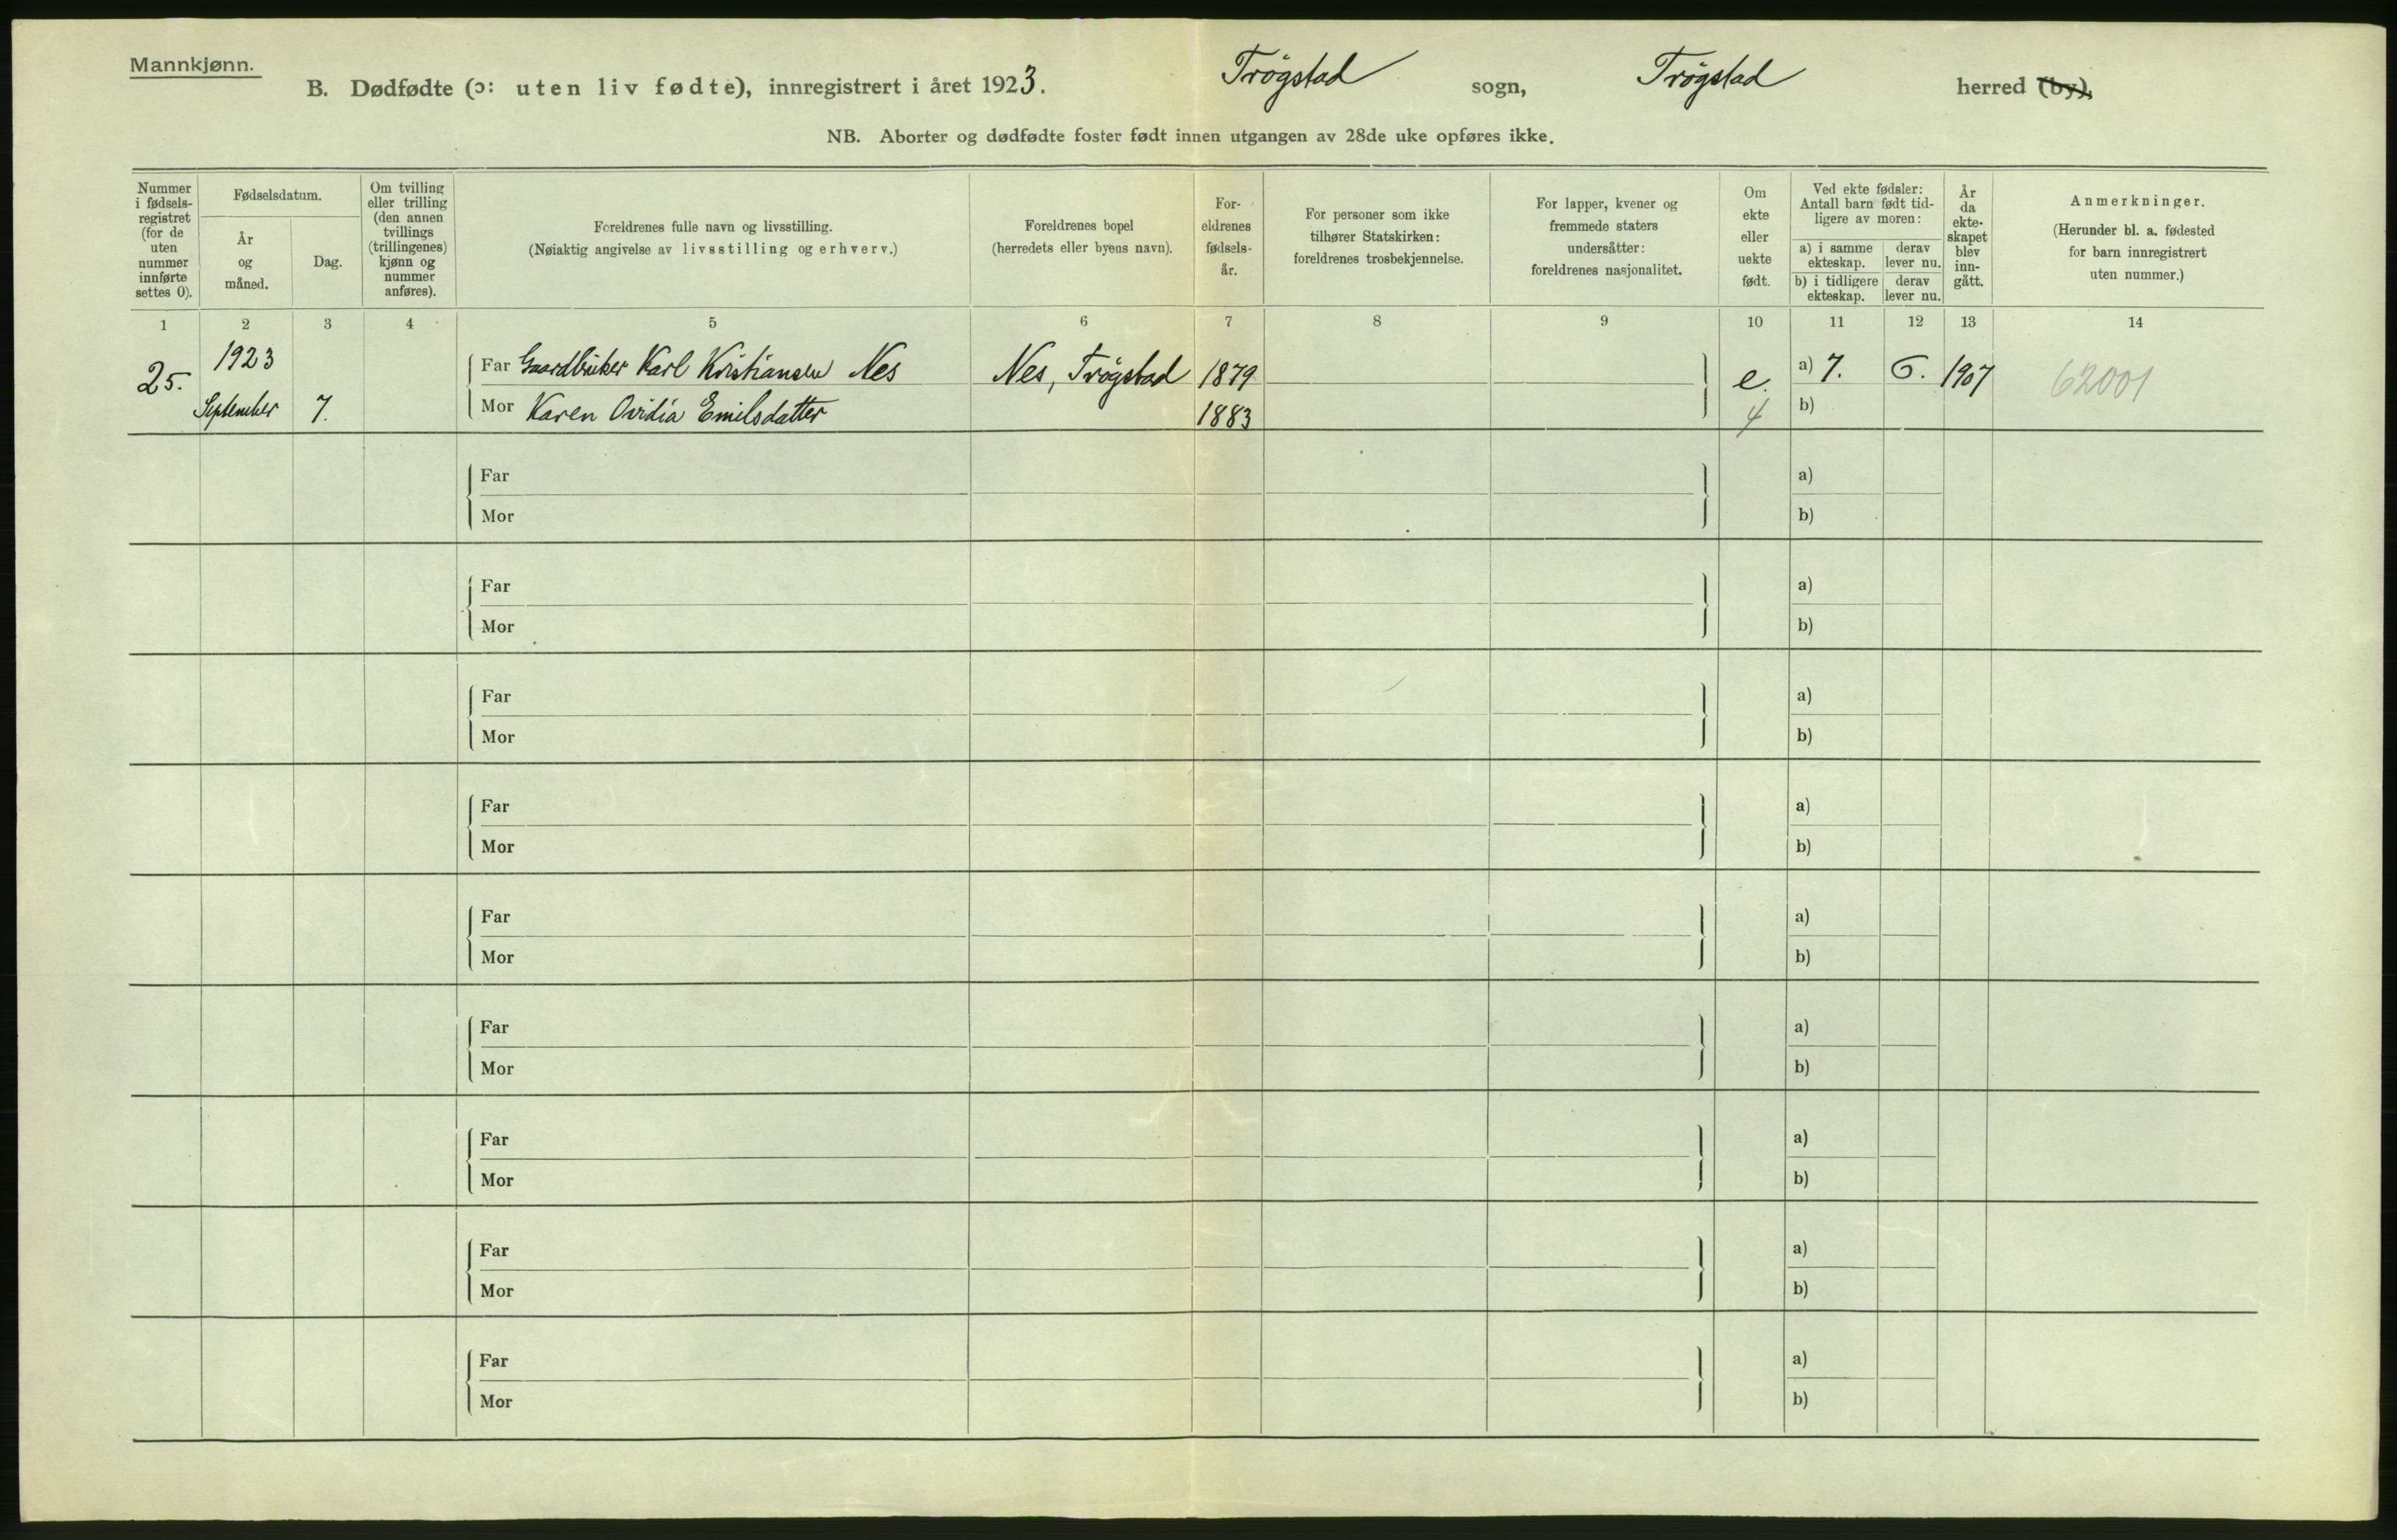 Mannkjønn.
B. Dødfødte (ɔ: uten liv fødte), innregistrert i året 1923. Trögstad sogn, Trögstad herred (by),
NB. Aborter og dødfødte foster født innen utgangen av 28de uke opføres ikke.
Nummer i fødsels-registret (for de uten nummer innførte settes 0).
Fødselsdatum.
År og måned.
Dag.
Om tvilling eller trilling (den annen tvillings (trillingenes) kjønn og nummer anføres).
Foreldrenes fulle navn og livsstilling.
(Nøiaktig angivelse av livsstilling og erhverv.)
Foreldrenes bopel
(herredets eller byens navn).
For-eldrenes fødsels-år.
For personer som ikke tilhører Statskirken: foreldrenes trosbekjennelse.
For lapper, kvener og fremmede staters undersåtter: foreldrenes nasjonalitet.
Om ekte eller uekte født.
Ved ekte fødsler: Antall barn født tid-ligere av moren:
a) i samme ekteskap.
derav lever nu.
b) i tidligere ekteskap.
derav lever nu.
År da ekte-skapet blev inn-gått.
Anmerkninger.
(Herunder bl. a. fødested for barn innregistrert uten nummer.)
1 2 3 4 5 6 7 8 9 10 11 12 13 14
25. 1923 Far Gaardbruker Karl Kristiansen Nes Nes, Trögstad 1879 e. a) 7. 6. 1907 62001
September 7. Mor Karen Ovidia Emilsdatter 1883 4 b)
Far a)
Mor b)
Far a)
Mor b)
Far a)
Mor b)
Far a)
Mor b)
Far a)
Mor b)
Far a)
Mor b)
Far a)
Mor b)
Far a)
Mor b)
Far a)
Mor b)